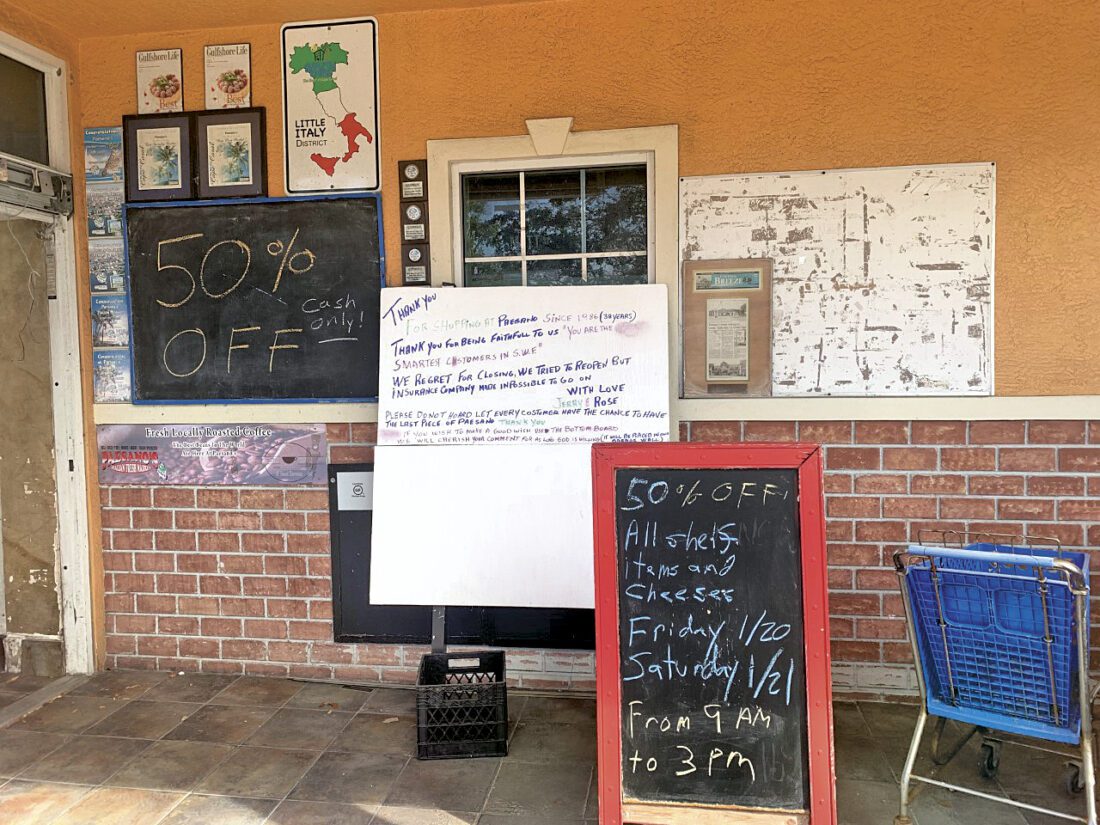 Gulfshore Life
Best
Gulfshore Life
Best
LITTLE
ITALY
DISTRICT
50%
OFF
Cash
only!
THANK YOU
FOR SHOPPING AT PAESANO SINCE 1986 (38 YEARS)
THANK YOU FOR BEING FAITHFULL TO US "YOU ARE THE
SMARTEST CUSTOMERS IN S.W.F"
WE REGRET FOR CLOSING, WE TRIED TO REOPEN BUT
INSURANCE COMPANY MADE IMPOSSIBLE TO GO ON
WITH LOVE
JERRY & ROSE
PLEASE DO NOT HOARD LET EVERY CUSTOMER HAVE THE CHANCE TO HAVE
THE LAST PIECE OF PAESANO THANK YOU
IF YOU WISH TO MAKE A GOOD WISH USE THE BOTTOM BOARD
WE WILL CHERISH YOUR COMMENT FOR AS LONG GOD IS WILLING
BREEZE
Fresh Locally Roasted Coffee
The Best Beans In The World
Are Here At Paesano's
PAESANO'S
50% OFF
All shelf
items and
cheeses
Friday 1/20
Saturday 1/21
From 9 AM
to 3 pm